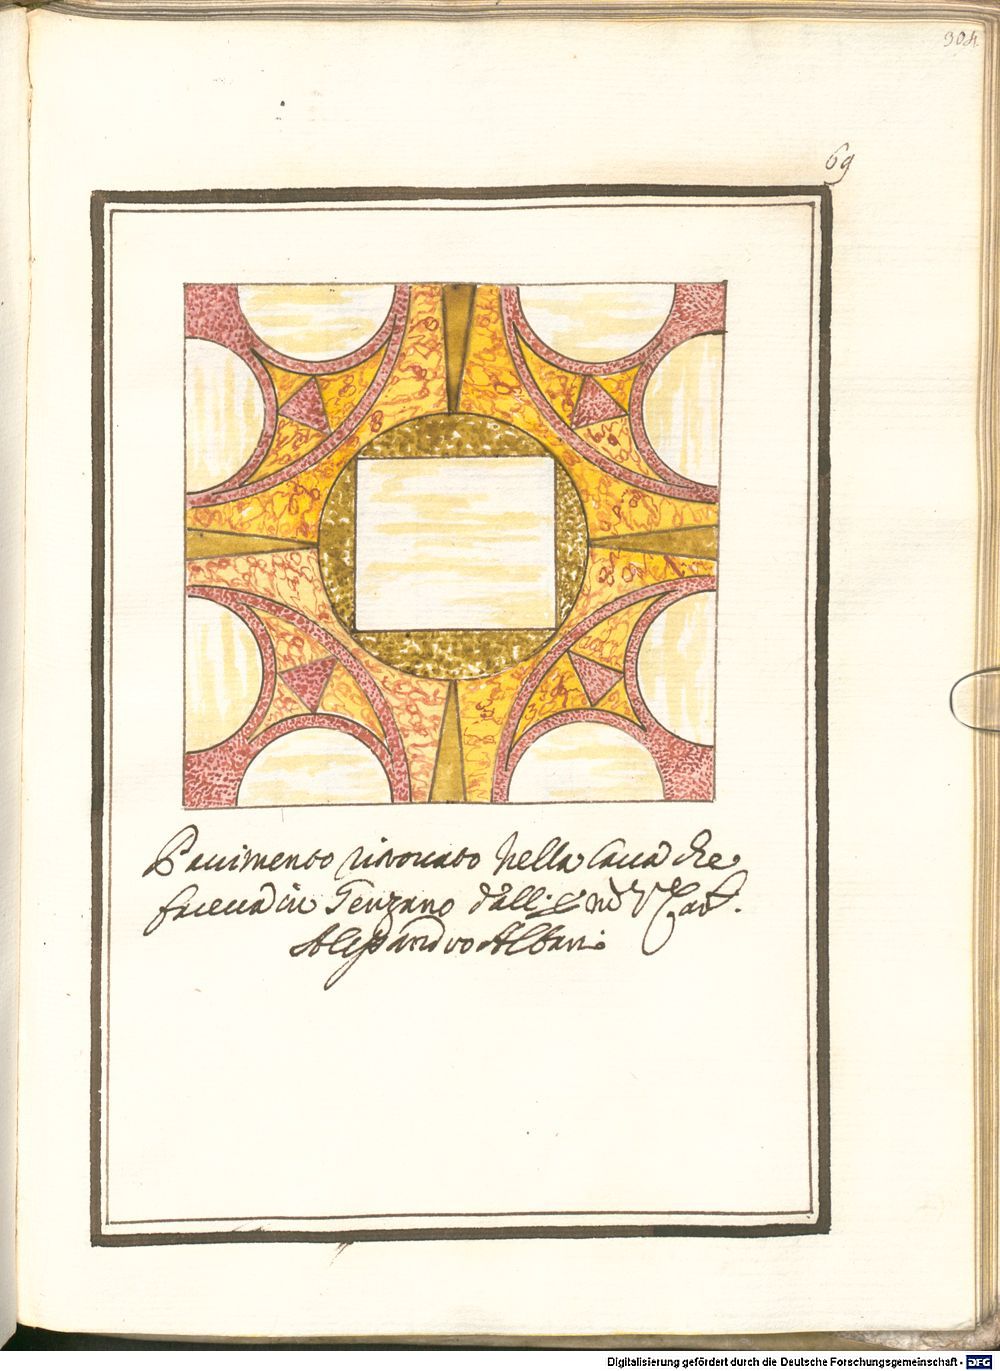 304.
69
Pavimento ritrovato nella Cava che
faceva in Genzano dall' Em͠o Car.
Alessandro Albani
Digitalisierung gefördert durch die Deutsche Forschungsgemeinschaft - DFG